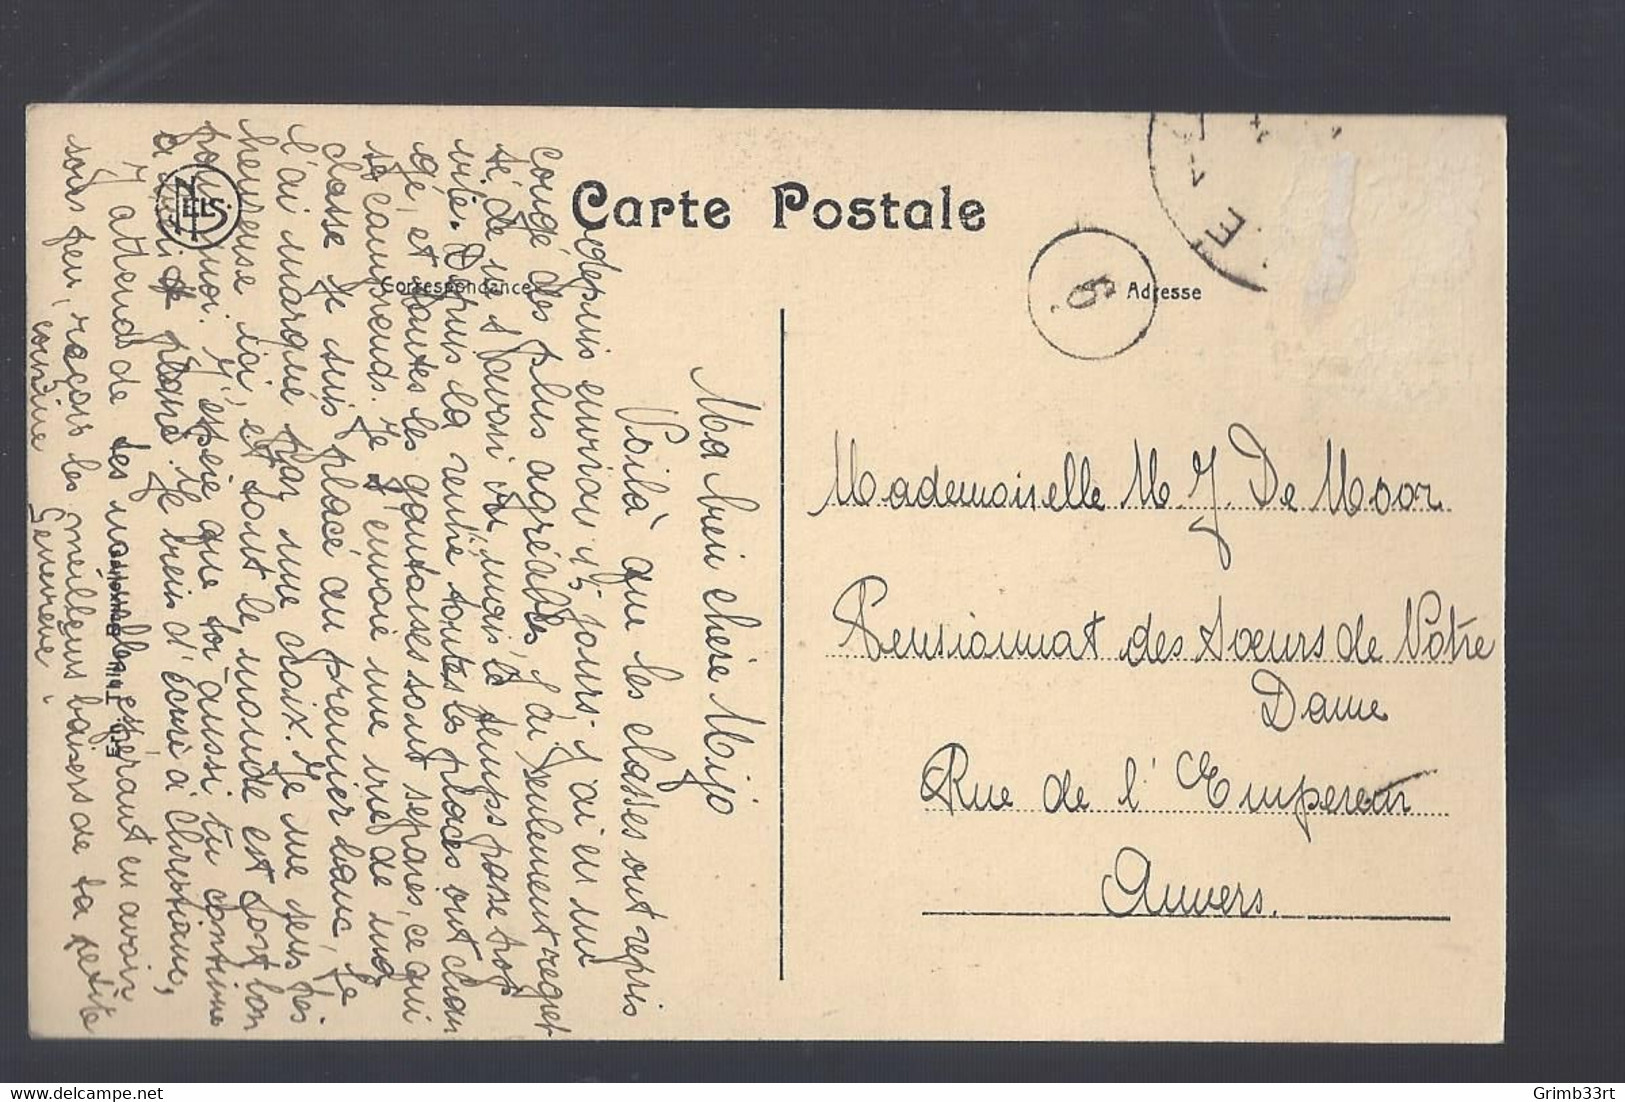 Carte Postale
Correspondance
Adresse
NELS
6
E
Ma bien chère Mijo
Voilà que les classes ont repris
depuis environ 15 jours. J'ai eu un
congé des plus agréables, j'ai seulement regret
té de ne t'avoir vu, mais le temps passe trop
vite. Depuis la rentré toutes les places ont chan
gé, et toutes les gantoises sont separés, ce qui
se comprends. Je t'envoie une vue de ma
classe je suis placé au premier banc, je
l'ai marqué par une croix. Je me sens très
heureuse ici, et tout le monde est fort bon
pour moi. J'espère que toi aussi tu continue
à plaire. Je viens d'écrire à Christiane,
J'attend de tes nouvelles espérant en avoir
sous peu, reçois les meilleurs baisers de ta petite
cousine Geneviève.
Mademoiselle M J. De Moor
Pensionnat des Soeurs de Notre
Dame
Rue de l'Empereur
Anvers.